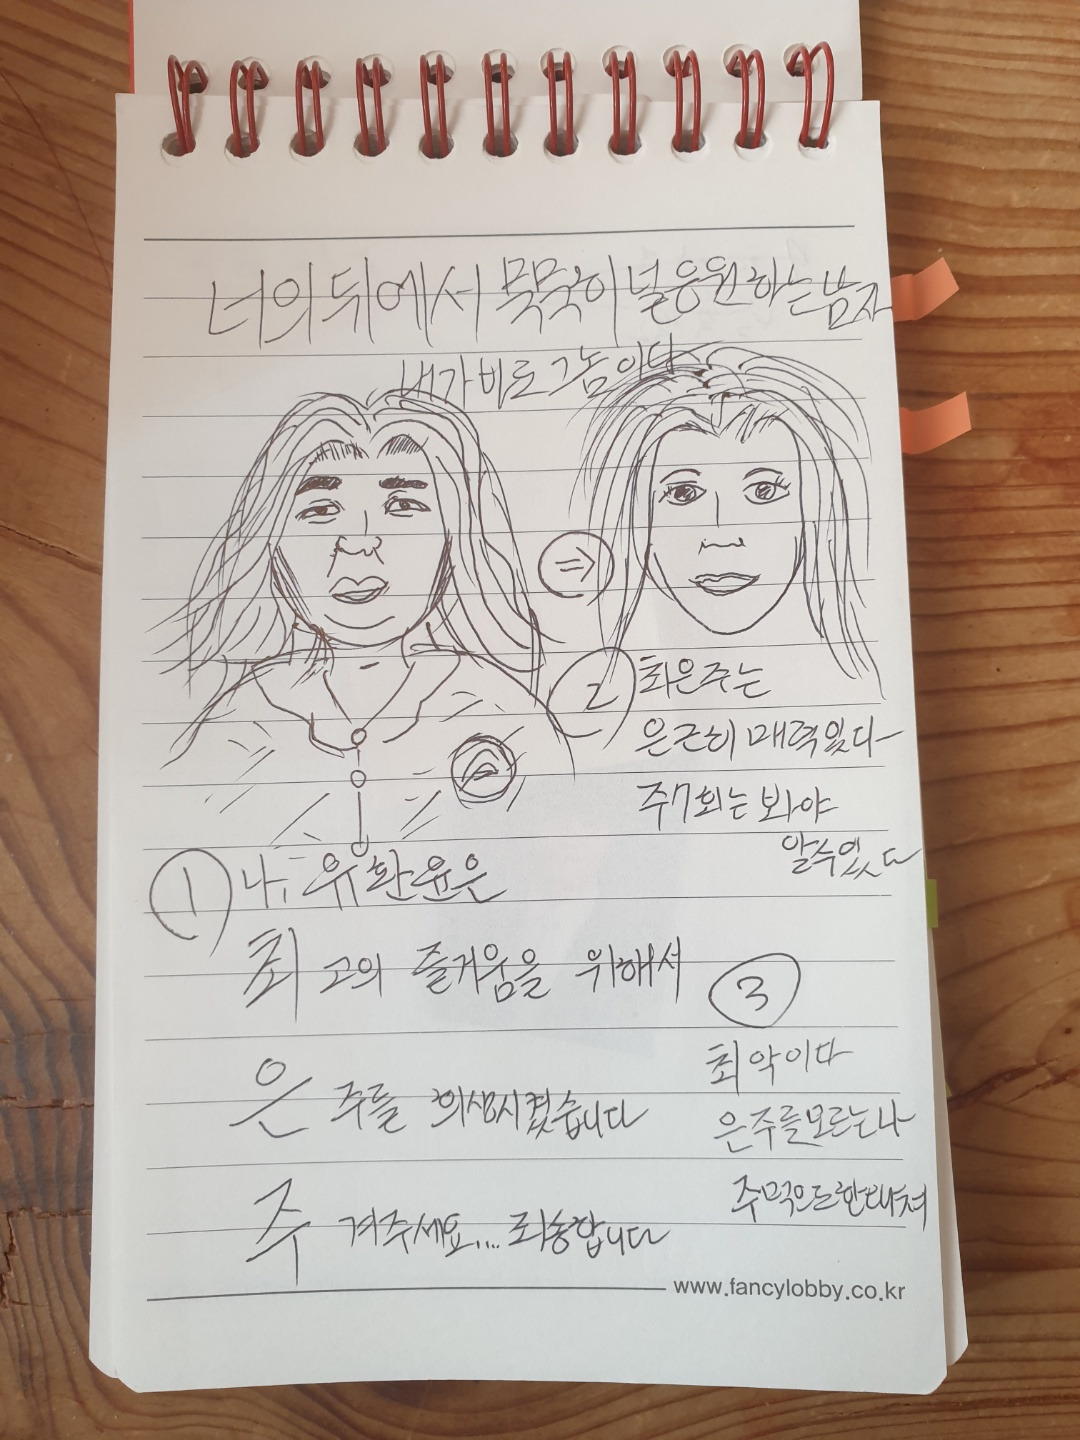 너의 뒤에서 묵묵히 널 응원하는 남자
내가 바로 그놈이다
⇒
2 최은주는
은근히 매력있다
주7회는 봐야
알수있다
1 나, 유환윤은
최고의 즐거움을 위해서
은주를 희생시켰습니다
주겨주세요... 죄송합니다
3
최악이다
은주를모르는나
주먹으로한대쳐
www.fancylobby.co.kr